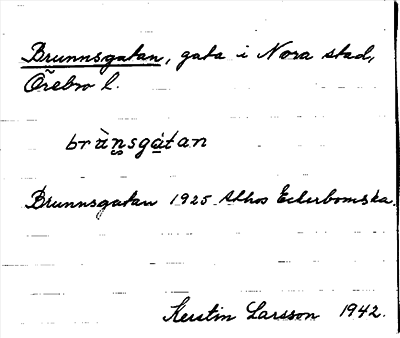 Brunnsgatan, gata i Nora stad,
Örebro l.
brùn̥sgát̥an
Brunnsgatan 1925 Athos Ederbomska.
Kerstin Larsson 1942.